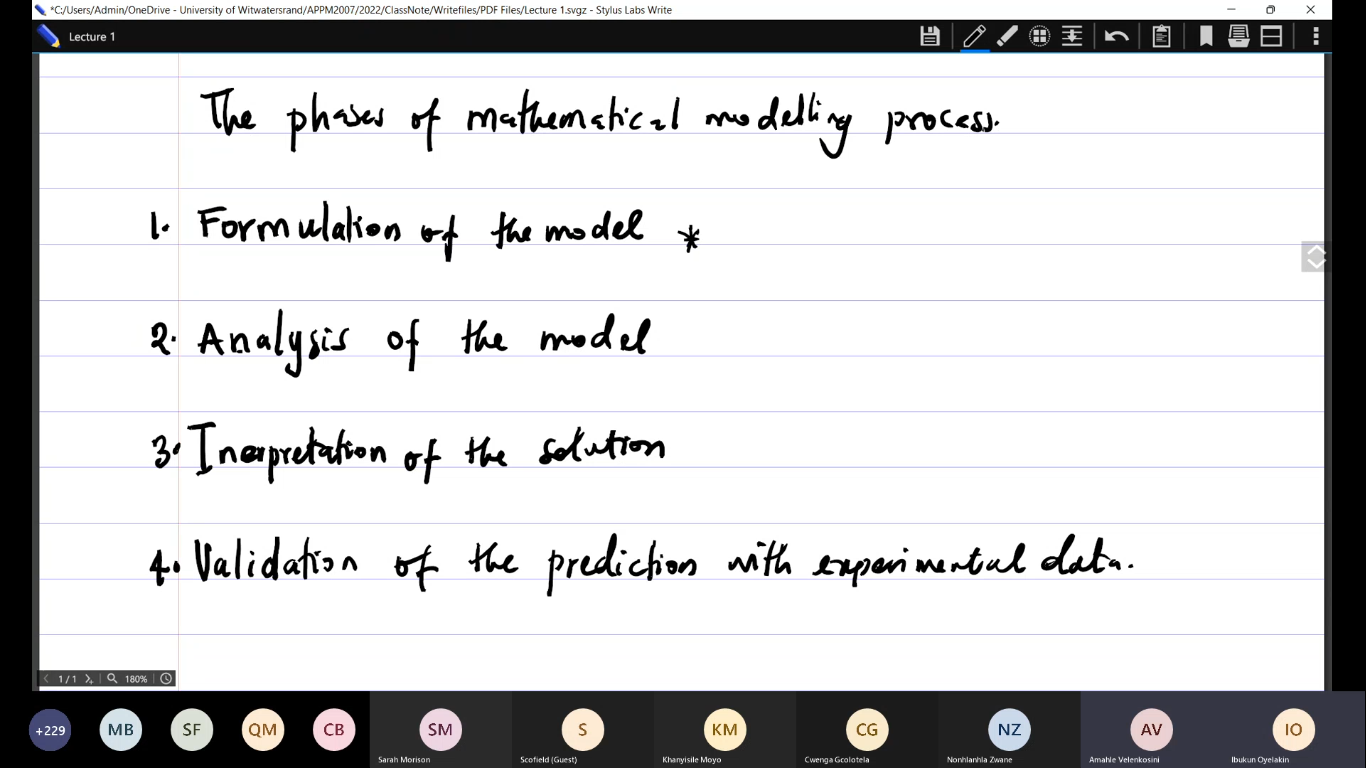 *C:/Users/Admin/OneDrive - University of Witwatersrand/APPM2007/2022/ClassNote/Writefiles/PDF Files/Lecture 1.svgz - Stylus Labs Write
Lecture 1
The phases of mathematical modelling process.
1. Formulation of the model *
2. Analysis of the model
3. Inerpretation of the solution
4. Validation of the prediction with experimental data.
1 / 1 180%
+229 MB SF QM CB SM S KM CG NZ AV IO
Sarah Morison Scofield (Guest) Khanyisile Moyo Cwenga Gcolotela Nonhlanhla Zwane Amahle Velenkosini Ibukun Oyelakin